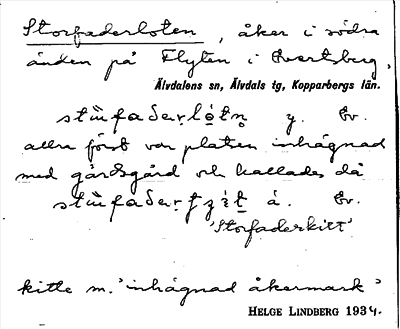 Storfaderloten, åker i södra
änden på Flyten i Evertsberg,
Älvdalens sn, Älvdals tg, Kopparbergs län.
y. Ev.
allra först var platsen inhägnad
med gärdsgård och kallades då
å. Ev.
'Storfaderkitt'
kitte m. 'inhägnad åkermark'
HELGE LINDBERG 1934.